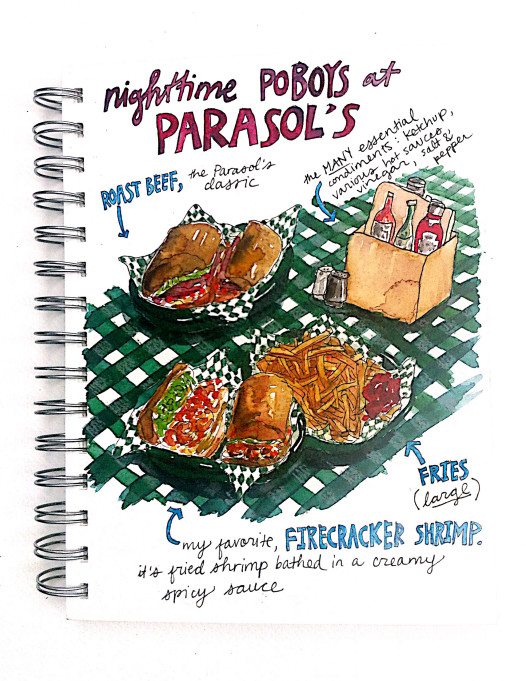 nighttime POBOYS at
PARASOL'S
the MANY essential
condiments: ketchup,
various hot sauces,
vinegar, salt &
pepper
ROAST BEEF, the Parasol's
classic
FRIES
(large)
my favorite, FIRECRACKER SHRIMP.
it's fried shrimp bathed in a creamy
spicy sauce